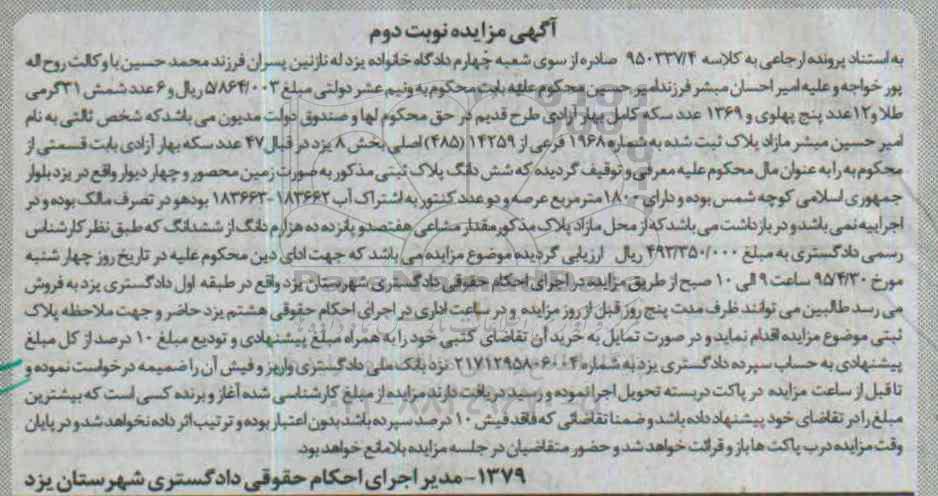 آگهی مزایده نوبت دوم
به استناد پرونده ارجاعی به کلاسه ۹۵۰۳۳۷/۴ صادره از سوی شعبه چهارم دادگاه خانواده یزد له نازنین پسران فرزند محمد حسین با وکالت روح اله
پور خواجه و علیه امیر احسان مبشر فرزند امیر حسین محکوم علیه بابت محکوم به و نیم عشر دولتی مبلغ ۵/۸۶۴/۰۰۳ ریال و ۶ عدد شمش ۳۱ گرمی
طلا و ۱۲ عدد پنج پهلوی و ۱۳۶۹ عدد سکه کامل بهار آزادی طرح قدیم در حق محکوم لها و صندوق دولت مدیون می باشد که شخص ثالثی به نام
امیر حسین مبشر مازاد پلاک ثبت شده به شماره ۱۹۶۸ فرعی از ۱۴۲۵۹ (۴۸۵) اصلی بخش ۸ یزد در قبال ۴۷ عدد سکه بهار آزادی بابت قسمتی از
محکوم به را به عنوان مال محکوم علیه معرفی و توقیف گردیده که شش دانگ پلاک ثبتی مذکور به صورت زمین محصور و چهار دیوار واقع در یزد بلوار
جمهوری اسلامی کوچه شمس بوده و دارای ۱۸۰۰ متر مربع عرصه و دو عدد کنتور به اشتراک آب ۱۸۳۶۶۲-۱۸۳۶۶۳ بوده و در تصرف مالک بوده و در
اجراییه نمی باشد و در بازداشت می باشد که از محل مازاد پلاک مذکور مقدار مشاعی هفتصد و پانزده ده هزارم دانگ از ششدانگ که طبق نظر کارشناس
رسمی دادگستری به مبلغ ۴۹۲/۳۵۰/۰۰۰ ریال ارزیابی گردیده موضوع مزایده می باشد که جهت ادای دین محکوم علیه در تاریخ روز چهار شنبه
مورخ ۹۵/۴/۳۰ ساعت ۹ الی ۱۰ صبح از طریق مزایده در اجرای احکام حقوقی دادگستری شهرستان یزد واقع در طبقه اول دادگستری یزد به فروش
می رسد طالبین می توانند ظرف مدت پنج روز قبل از روز مزایده و در ساعت اداری در اجرای احکام حقوقی هشتم یزد حاضر و جهت ملاحظه پلاک
ثبتی موضوع مزایده اقدام نماید و در صورت تمایل به خرید آن تقاضای کتبی خود را به همراه مبلغ پیشنهادی و تودیع مبلغ ۱۰ درصد از کل مبلغ
پیشنهادی به حساب سپرده دادگستری یزد به شماره ۲۱۷۱۲۹۵۸۰۶۰۰۴ نزد بانک ملی دادگستری واریز و فیش آن را ضمیمه درخواست نموده و
تا قبل از ساعت مزایده در پاکت دربسته تحویل اجرا نموده و رسید دریافت دارند مزایده از مبلغ کارشناسی شده آغاز و برنده کسی است که بیشترین
مبلغ را در تقاضای خود پیشنهاد داده باشد و ضمنا تقاضائی که فاقد فیش ۱۰ درصد سپرده باشد بدون اعتبار بوده و ترتیب اثر داده نخواهد شد و در پایان
وقت مزایده درب پاکت ها باز و قرائت خواهد شد و حضور متقاضیان در جلسه مزایده بلامانع خواهد بود.
۱۳۷۹- مدیر اجرای احکام حقوقی دادگستری شهرستان یزد